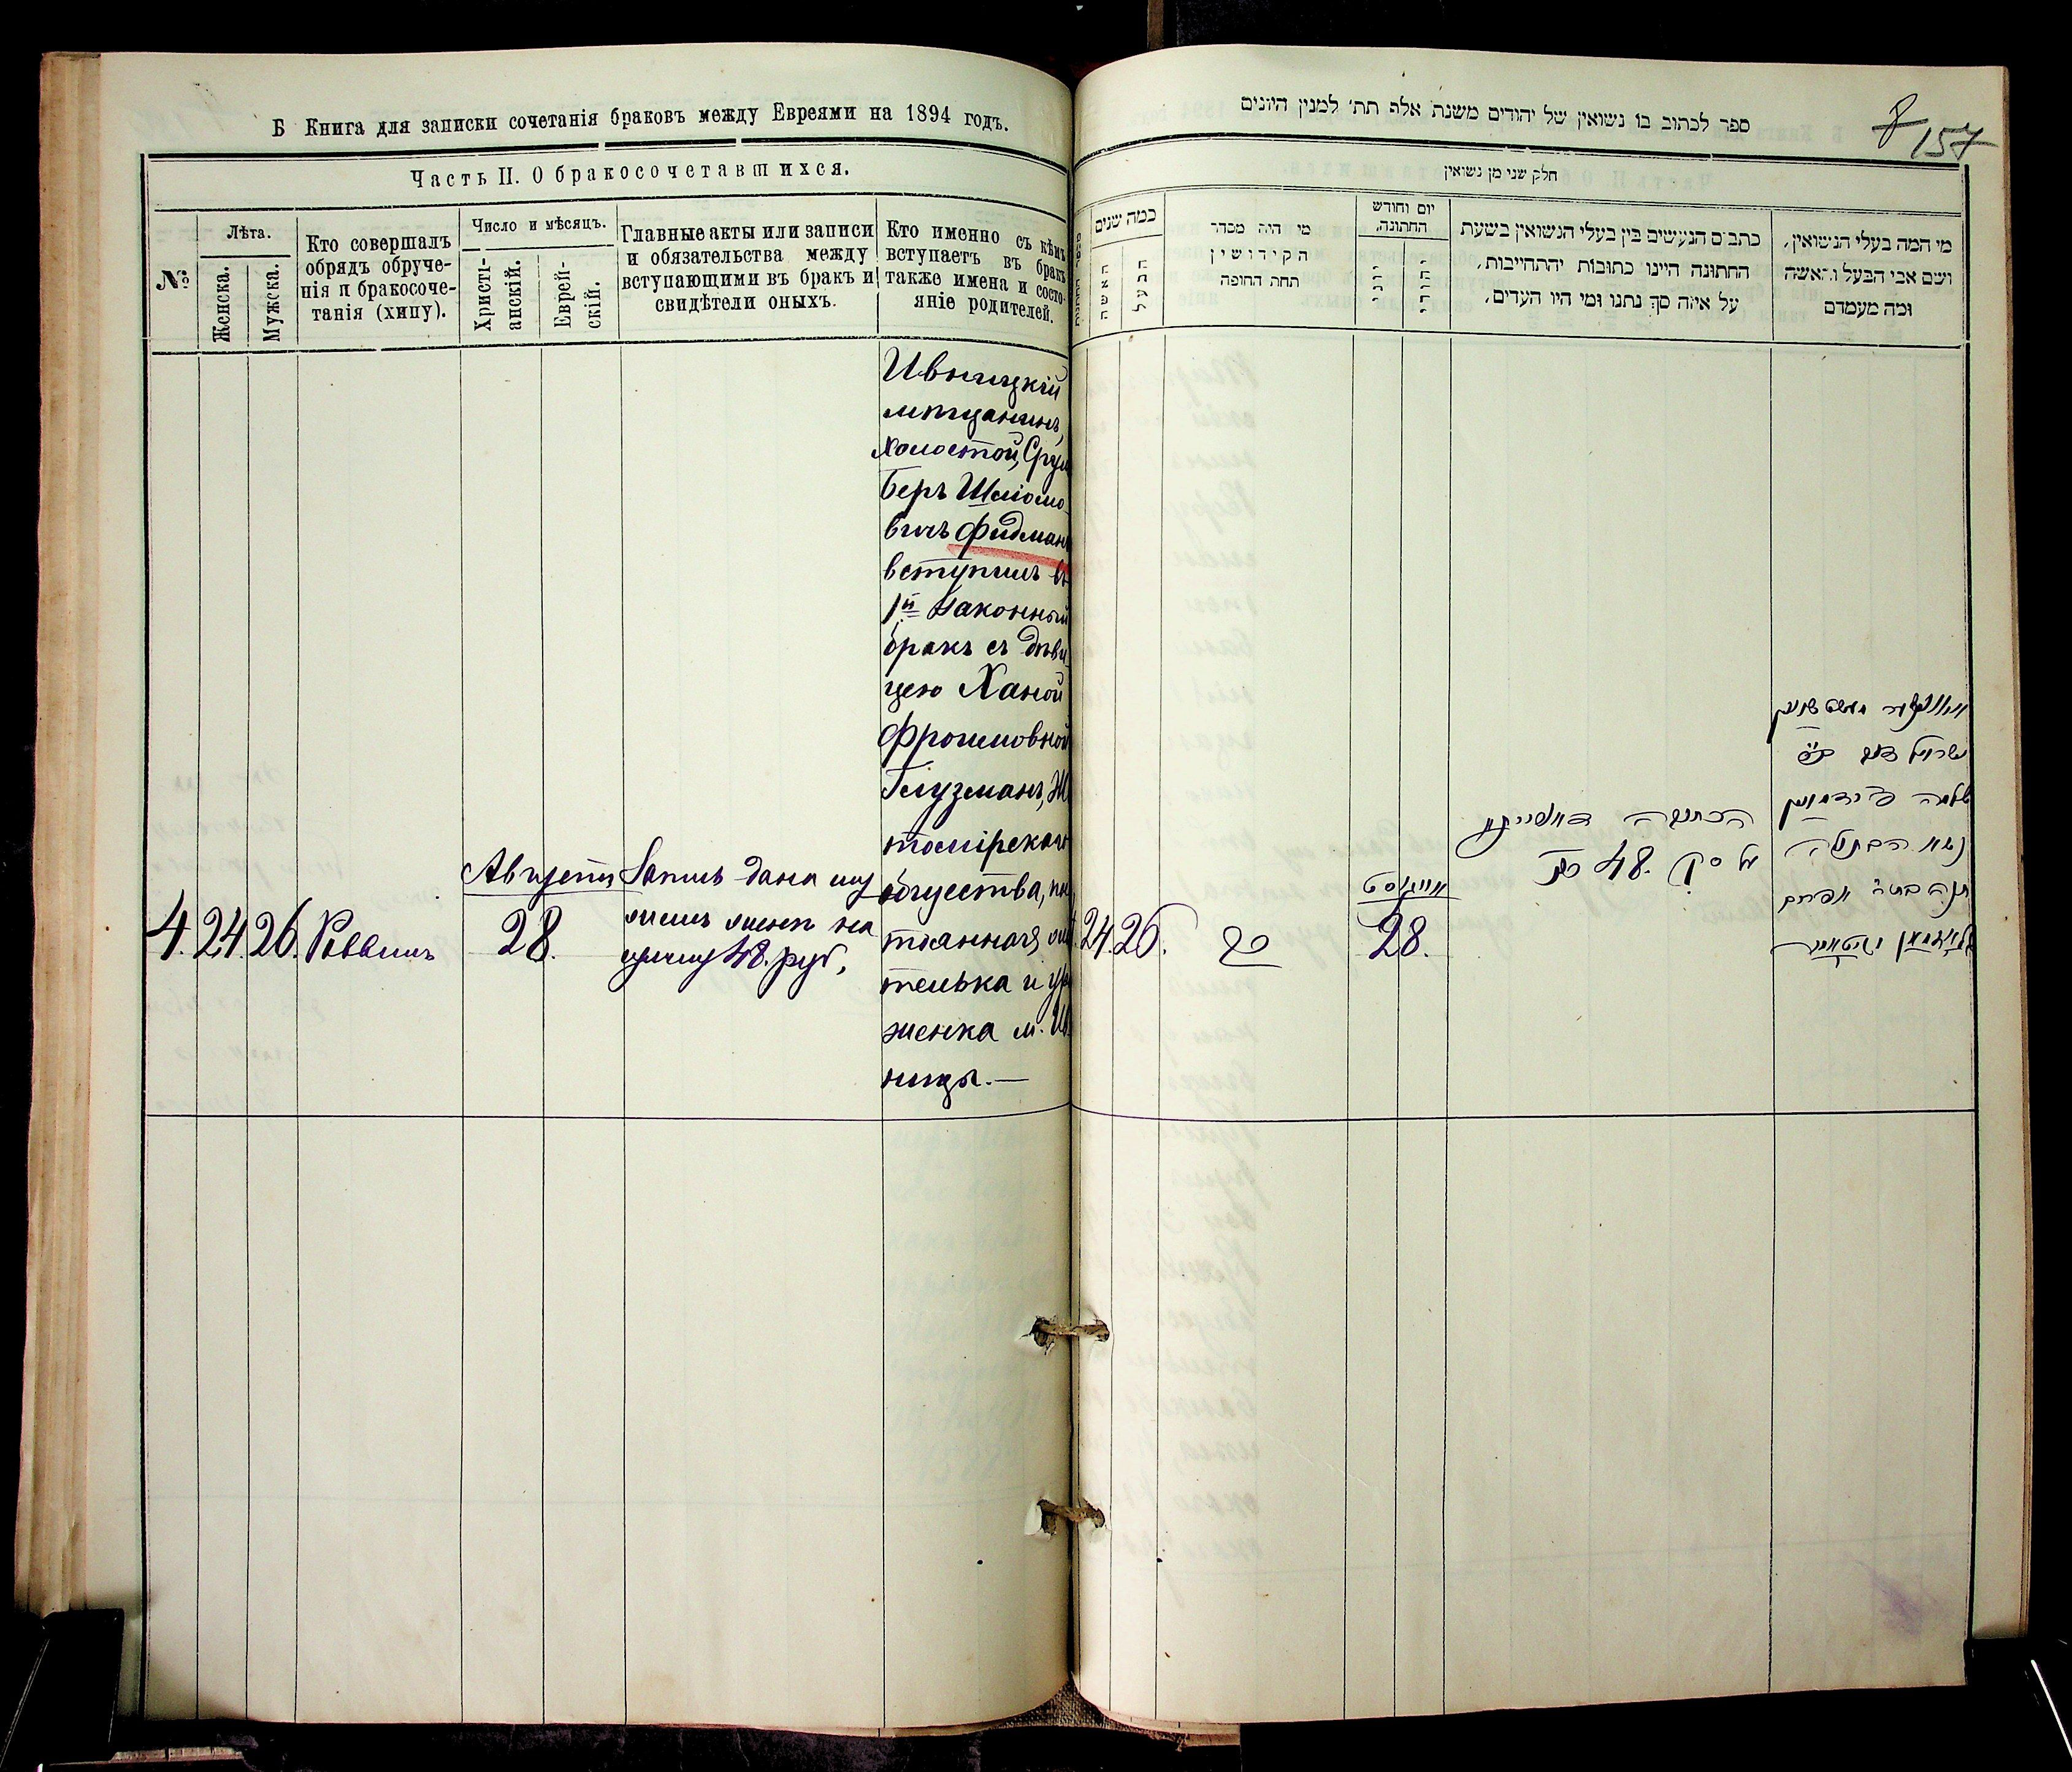 Б Книга для записки сочетанія браковъ между Евреями на 1894 годъ.
Часть II. О бракосочетавшихся.
№
Лѣта.
Женска.
Мужска.
Кто совершалъ
обрядъ обруче-
нія и бракосоче-
танія (хипу).
Число и мѣсяцъ.
Христі-
анскій.
Еврей-
скій.
Главные акты или записи
и обязательства между
вступающими въ бракъ и
свидѣтели оныхъ.
Кто именно съ кѣмъ
вступаетъ въ бракъ
также имена и состо-
яніе родителей.
4. 24. 26. Раввинъ
Августа
28.
Запись дана
на
сумму 48. руб,
Ивницкій
мѣщанинъ,
холостой, Срул
Беръ Шліомо-
вичъ Фидманъ
вступилъ въ
1й законный
бракъ съ дѣви-
цею Ханой
Фроимовной
Глузманъ, Жи
томірскаго
общества,
тоянная
телька и уро
женка м. Ив
ницы.—
ספר לכתוב בו נשואין של יהודים משנת אלף תת׳ למנין היונים
8
157
חלק שני מן נשואין
כמה שנים
האשה
הבעל
מי היה מסדר
הקידושין
תחת החופה
יום וחודש
החתונה,
כתבים הנעשים בין בעלי הנשואין בשעת
החתונה היינו כתובות והתחייבות,
על איזה סך נתנו ומי היו העדים,
מי המה בעלי הנשואין,
ושם אבי הבעל והאשה
ומה מעמדם
24. 26.
רב
אויגוסט
28.
הכתובה
על סך 48. רו״כ
ישראל בער ב״ר
שלמה פידמאן
נשא הבתולה
חנה בת ר׳ אפרים
גלוזמאן